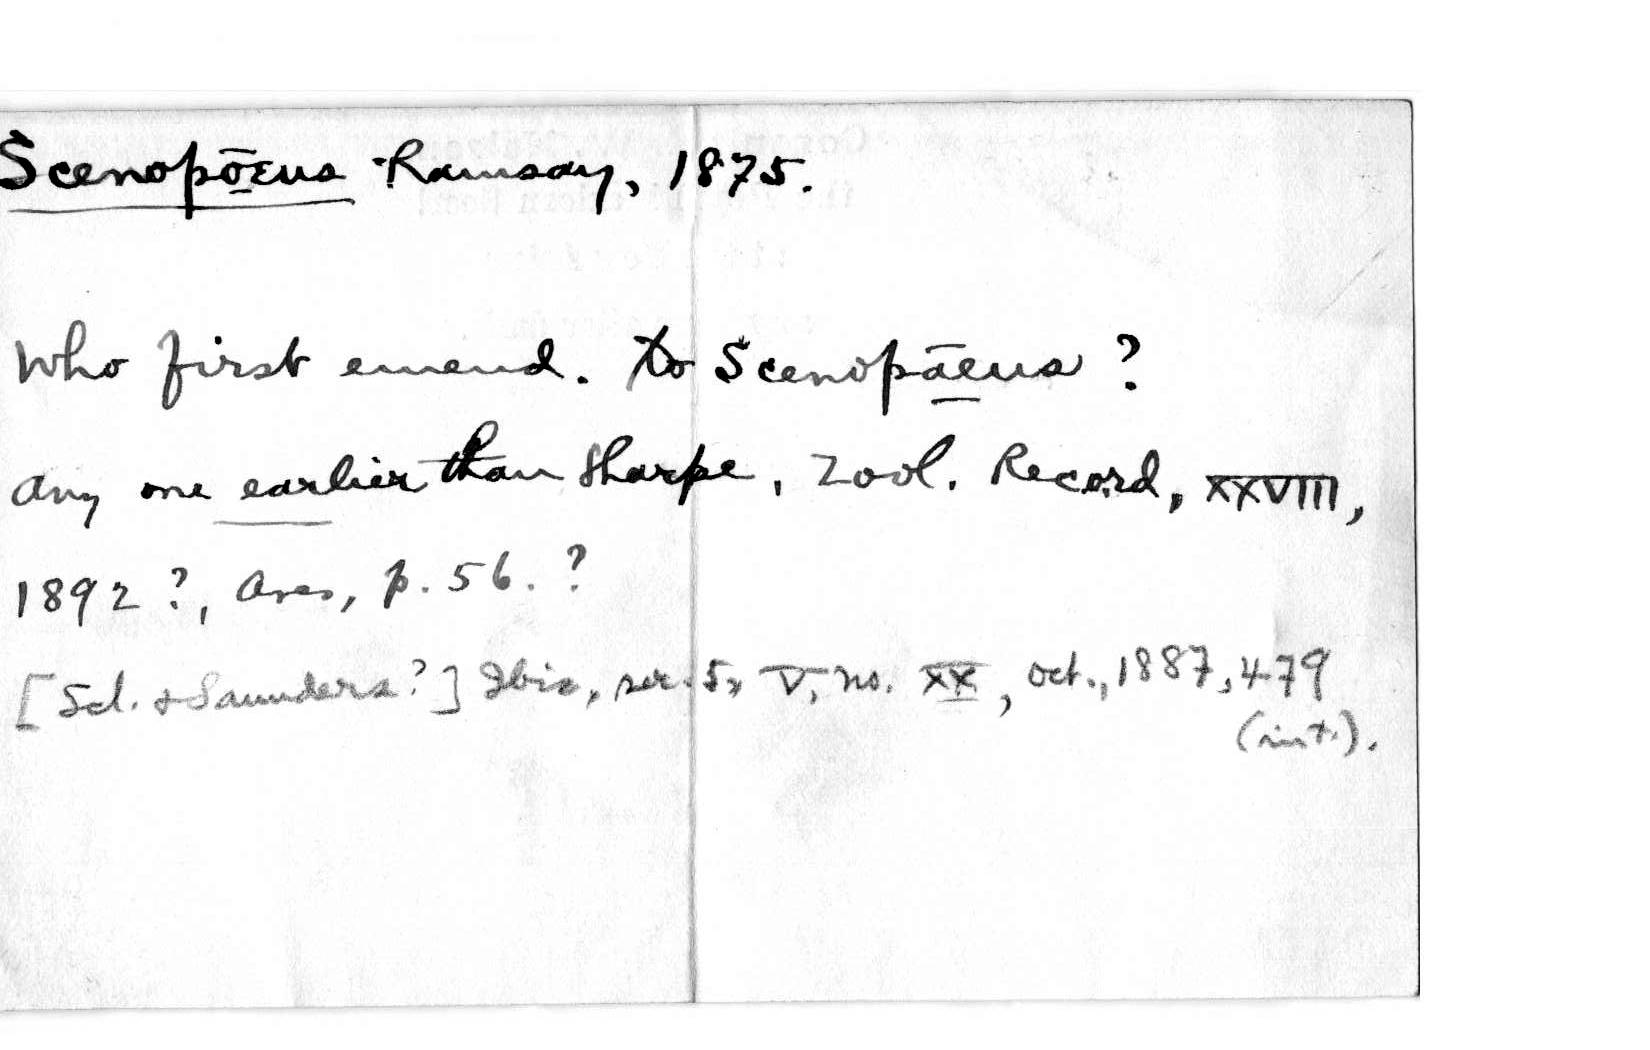 Scenopōeus Ramsay, 1875.
Who first emend. to Scenopāeus ?
Any one earlier than Sharpe, Zool. Record, XXVIII,
1892 ?, Aves, p. 56. ?
[Scl. & Saunders?] Ibis, ser. 5, V, no. XX, Oct., 1887, 479
(int.).